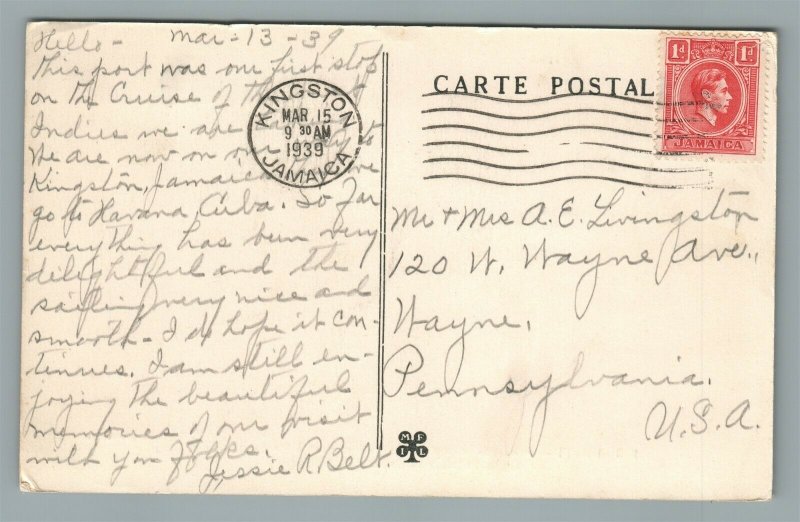 Hello - Mar-13-39
This port was our first stop
on the Cruise of the
Indies we are to
We are now on our way to
Kingston, Jamaica
go to Havana, Cuba. So far
everything has been very
delightful and the
sailing very nice and
smooth - I do hope it con-
tinues. I am still en-
joying the beautiful
memories of our visit
with you folks.
Jessie R. Belt.
KINGSTON
MAR 15
9 30 AM
1939
JAMAICA
CARTE POSTAL
1d 1d
JAMAICA
Mr + Mrs A. E. Livingston
120 W. Wayne Ave.,
Wayne,
Pennsylvania.
U.S.A.
M F
I L